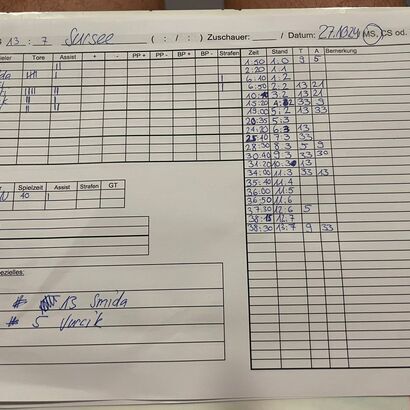 13 : 7 Sursee ( : / : ) Zuschauer: / Datum: 27.10.24 MS, CS od.
Tore Assist + - PP+ PP- BP+ BP- Strafen
Zeit Stand T A Bemerkung
1:50 1:0 9 5
2:20 1:1
6:10 1:2
6:50 2:2 13 21
3:2 13 21
15:20 4:2 33 9
19:00 5:2 13 33
20:35 5:3
21:20 6:3 13
25:10 7:3 33
28:30 8:3 5 9
30:40 9:3 33 30
31:20 10:3 13
34:00 11:3 33 13
35:40 11:4
36:00 11:5
36:50 11:6
37:30 12:6 5
38:15 12:7
38:30 13:7 9 33
Spielzeit Assist Strafen GT
40
# 13 Smida
# 5 Vurcik